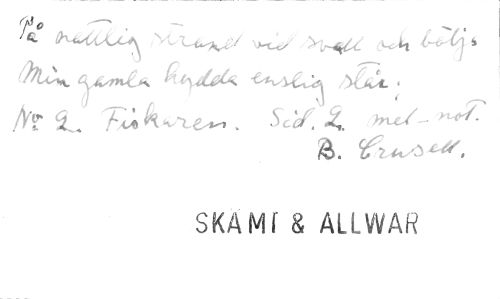 På nattlig strand vid svall och bölj.
Min gamla hydda enslig står.
No 2. Fiskaren. Sid. 2. mel-not.
B. Crusell.
SKÄMT & ALLWAR